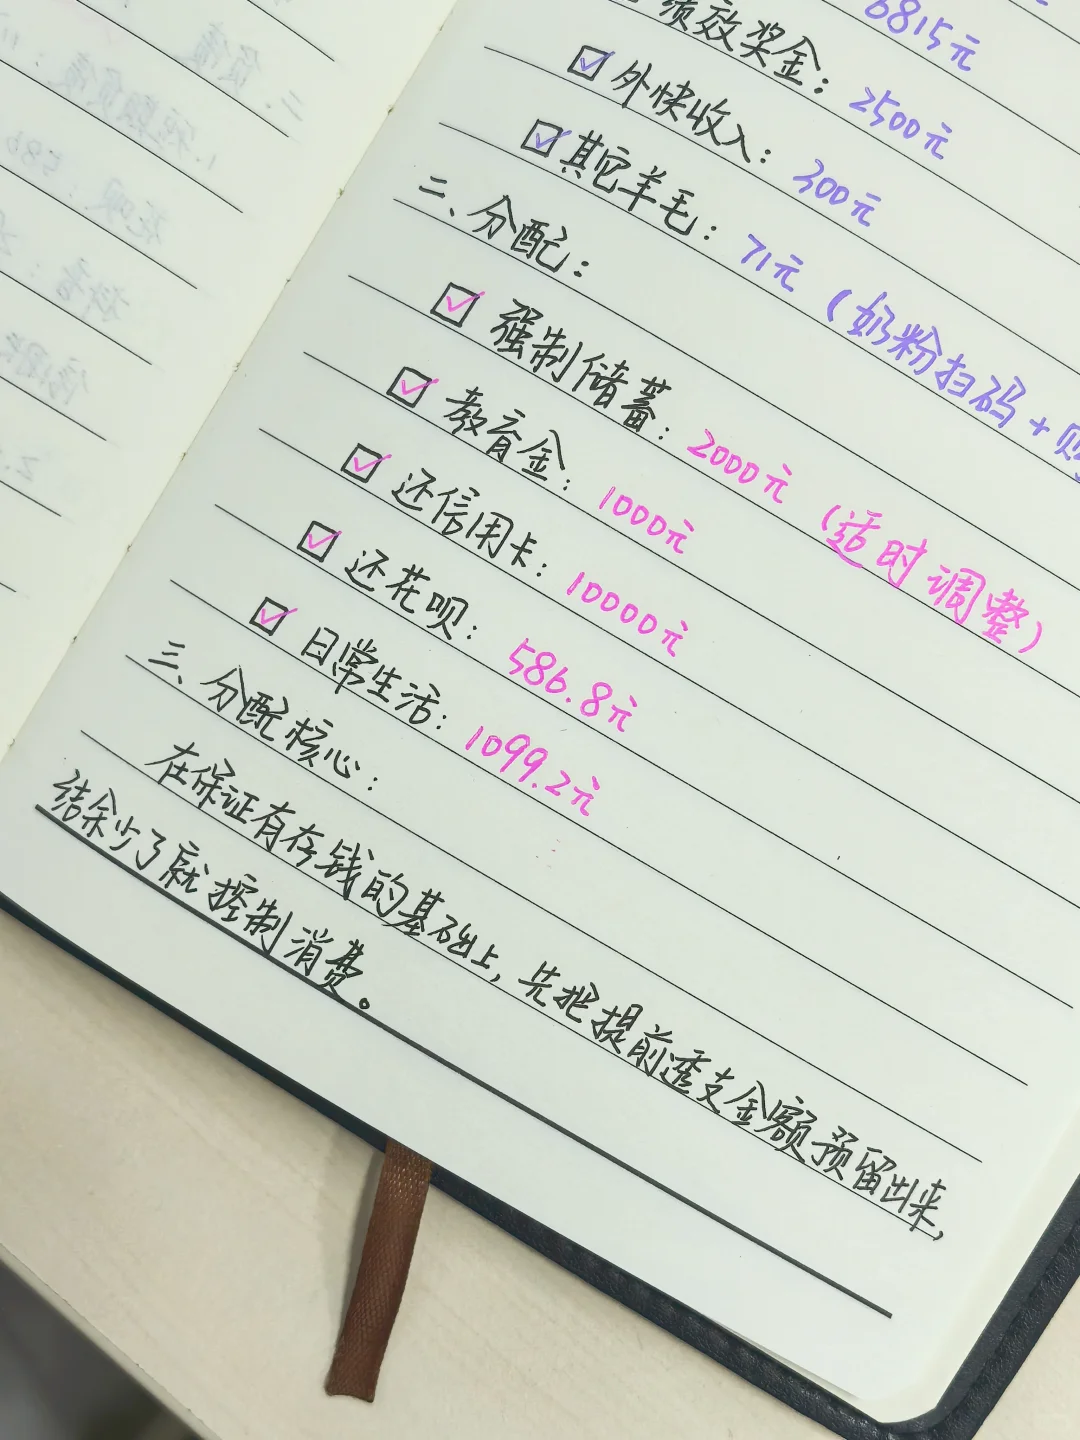 6815元
绩效奖金：2500元
外快收入：300元
其它羊毛：71元（奶粉扫码+
二、分配：
强制储蓄：2000元（适时调整）
教育金：1000元
还信用卡：10000元
还花呗：586.8元
日常生活：1099.2元
三、分配核心：
在保证有存钱的基础上，先把提前透支金额预留出来，
结余少了就控制消费。